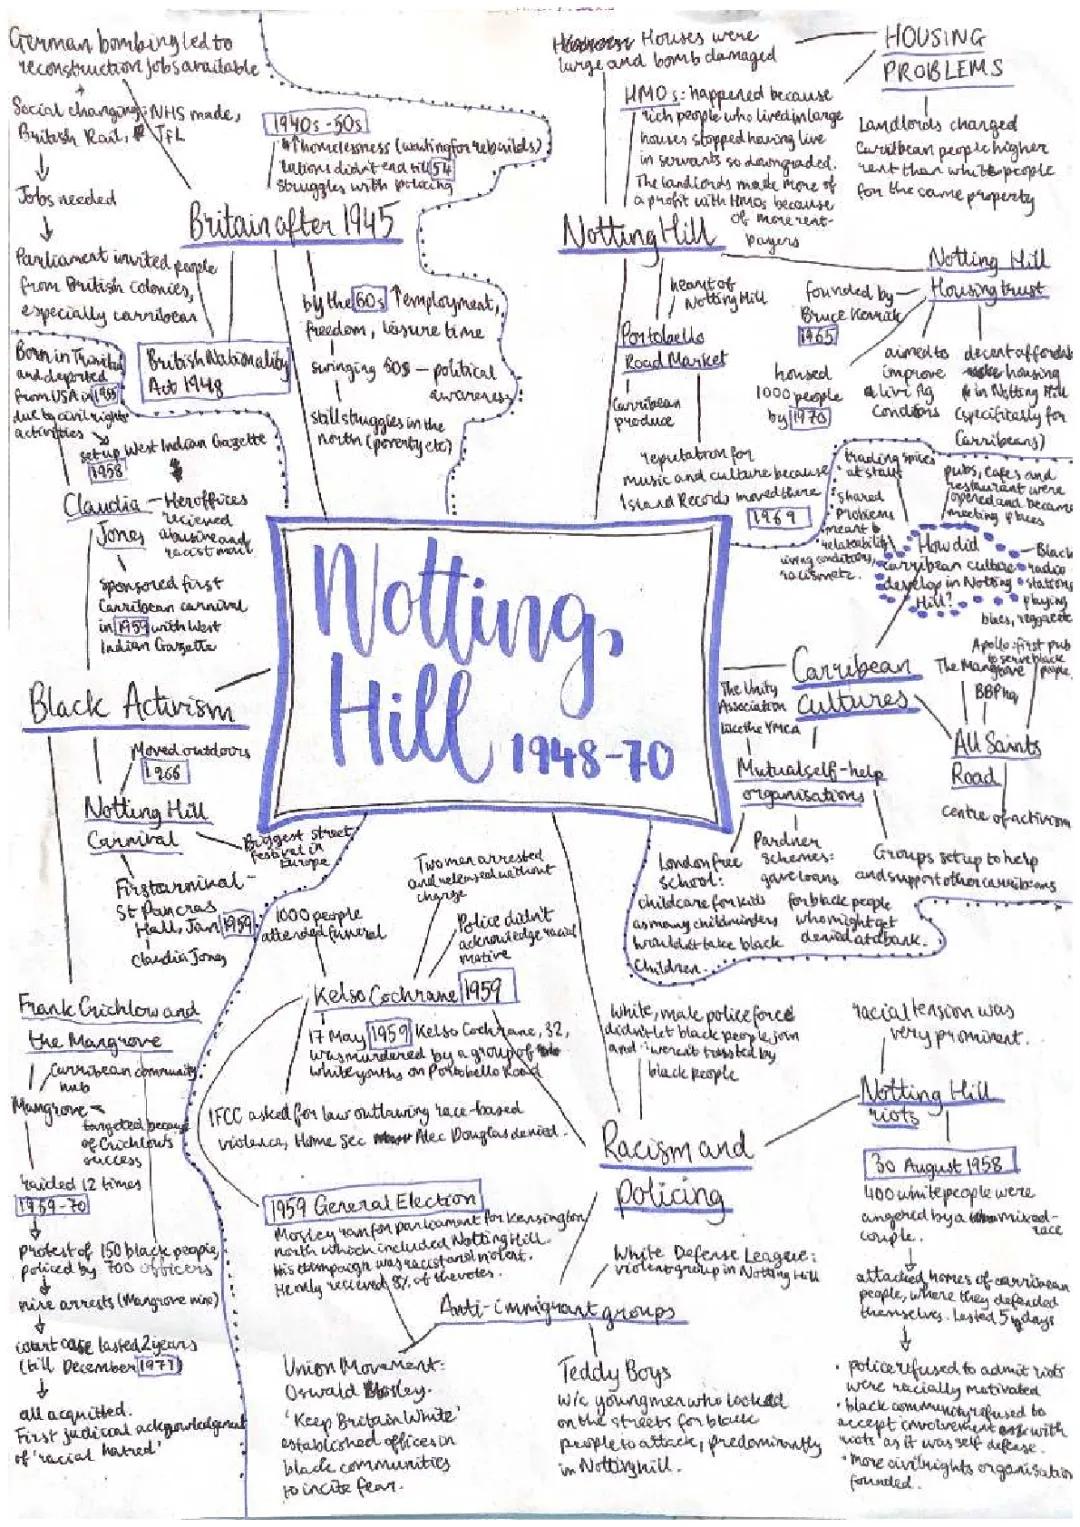 German bombing led to
reconstruction jobs available
Social changing: NHS made,
British Rail, TFL
Jobs needed
Parliament invited people
from British colonies,
especially carribean
1940s-50s
↑homelessness (waiting for rebuilds)
rations didn't end till 54
struggles with policing
Britain after 1945
by the 60s ↑employment,
freedom, leisure time
swinging 60s - political
awareness
still struggles in the
north (poverty etc)
British Nationality
Act 1948
Born in Trinidad
and deported
from USA in 1955
due to civil rights
activities
set up West Indian Gazette
1958
Claudia
Jones
Her offices
recieved
abusive and
racist mail
sponsored first
Carribean carnival
in 1959 with West
Indian Gazette
Black Activism
Moved outdoors
1966
Notting Hill
Carnival
Biggest street
festival in
Europe
First carnival -
St Pancras
Hall, Jan 1959
Claudia Jones
Frank Crichlow and
the Mangrove
Carribean community
hub
Mangrove
targeted because
of Crichlow's
success
raided 12 times
1969-70
protest of 150 black people,
policed by 700 officers
nine arrests (Mangrove nine)
court case lasted 2 years
(till December 1971)
all acquitted.
First judicial acknowledgement
of 'racial hatred'
Notting
Hill 1948-70
Houses were
large and bomb damaged
HOUSING
PROBLEMS
HMOs: happened because
rich people who lived in large
houses stopped having live
in servants so downgraded.
The landlords made more of
a profit with HMOs because
of more rent-
payers
Landlords charged
Carribean people higher
rent than white people
for the same property
Notting Hill
heart of
Notting Hill
Portobello
Road Market
Carribean
produce
reputation for
music and culture because
Island Records moved there
1969
Notting Hill
Housing trust
founded by
Bruce Kenrick
1965
housed
1000 people
by 1970
aimed to
improve
living
conditions
decent affordable
housing
in Notting Hill
(specifically for
Carribeans)
trading spices
at stalls
shared
problems
meant
relatability
living conditions,
racism etc.
pubs, cafes and
restaurant were
opened and became
meeting places
How did
carribean culture
develop in Notting
Hill?
Black
radio
stations
playing
blues, reggae etc
Carribean
cultures
Apollo: first pub
to serve black
people
The Mangrove
BBP hq
All Saints
Road
centre of activism
The Unity
Association
like the YMCA
Mutual self-help
organisations
London free
school:
childcare for kids
as many childminders
wouldn't take black
children.
Pardner
schemes:
gave loans
for black people
who might get
denied at a bank.
Groups set up to help
and support other carribeans
Two men arrested
and released without
charge
1000 people
attended funeral
Police didn't
acknowledge racial
motive
Kelso Cochrane 1959
17 May 1959 Kelso Cochrane, 32,
was murdered by a group of
white youths on Portobello Road
IFCC asked for law outlawing race-based
violence, Home Sec Alec Douglas denied.
1959 General Election
Mosley ran for parliament for Kensington
north which included Notting Hill.
His champaign was racist and violent.
He only recieved 8% of the votes.
White, male police force
didn't let black people join
and weren't trusted by
black people
Racism and
policing
racial tension was
very prominent.
Notting Hill
riots
30 August 1958
400 white people were
angered by a mixed-
race
couple.
attacked homes of carribean
people, where they defended
themselves. Lasted 5 days
· police refused to admit riots
were racially motivated
· black community refused to
accept involvement with
'riots' as it was self defense.
· more civil rights organisations
founded.
White Defense League:
violent group in Notting Hill
Anti-immigrant groups
Union Movement:
Oswald Mosley.
'Keep Britain White'
established offices in
black communities
to incite fear.
Teddy Boys
w/c young men who looked
on the streets for black
people to attack, predominantly
in Notting hill.